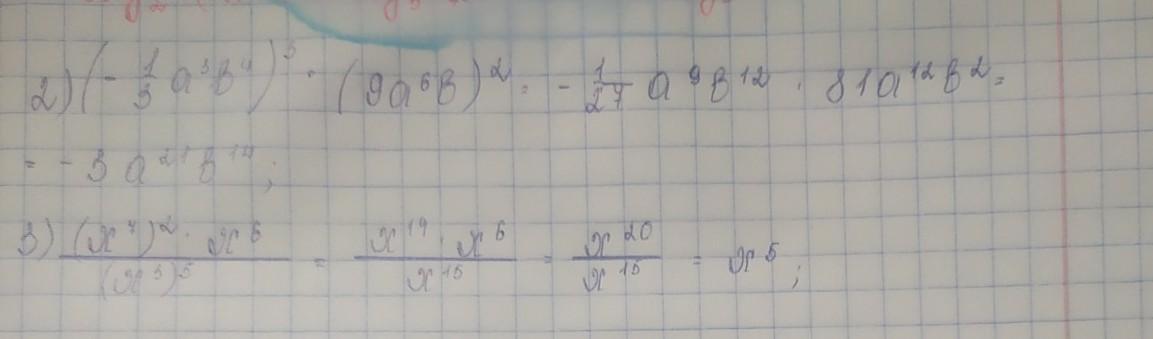 2) (-1/3 a³b⁴)³ · (9a⁶b)² = -1/27 a⁹b¹² · 81a¹²b² =
= -3a²¹b¹⁴;
3) (x⁷)² · x⁶ / (x³)⁵ = x¹⁴ · x⁶ / x¹⁵ = x²⁰ / x¹⁵ = x⁵;